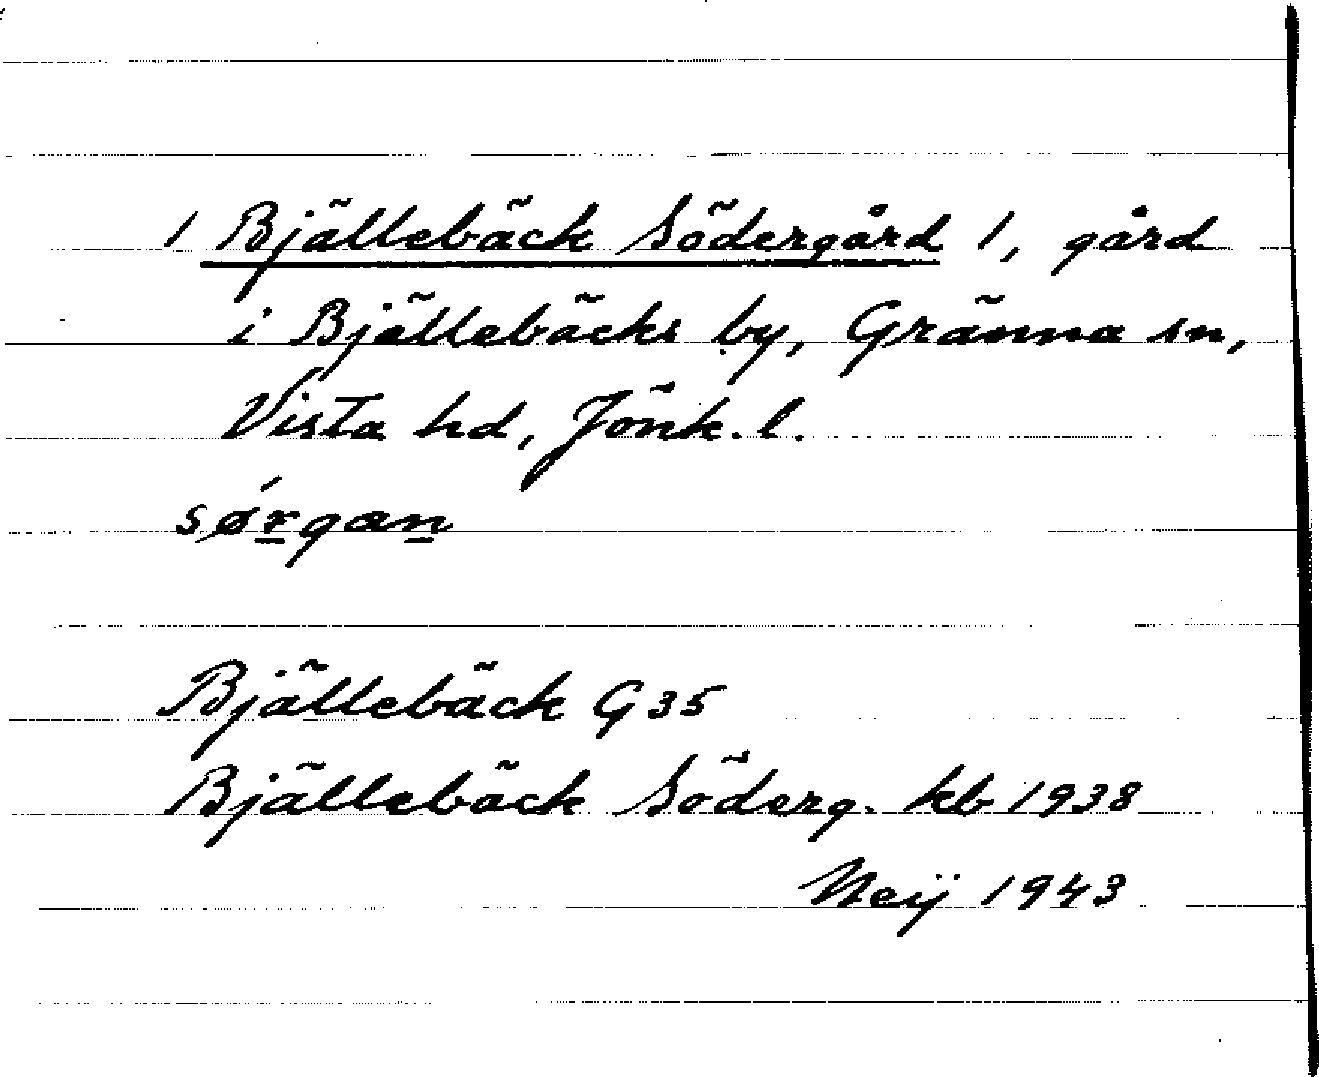 1 Bjällebäck Södergård 1, gård
i Bjällebäcks by, Gränna sn,
Vista hd, Jönk. l.
sǿr̲gæn̲
Bjällebäck G 35
Bjällebäck Söderg. kb 1938
Neij 1943